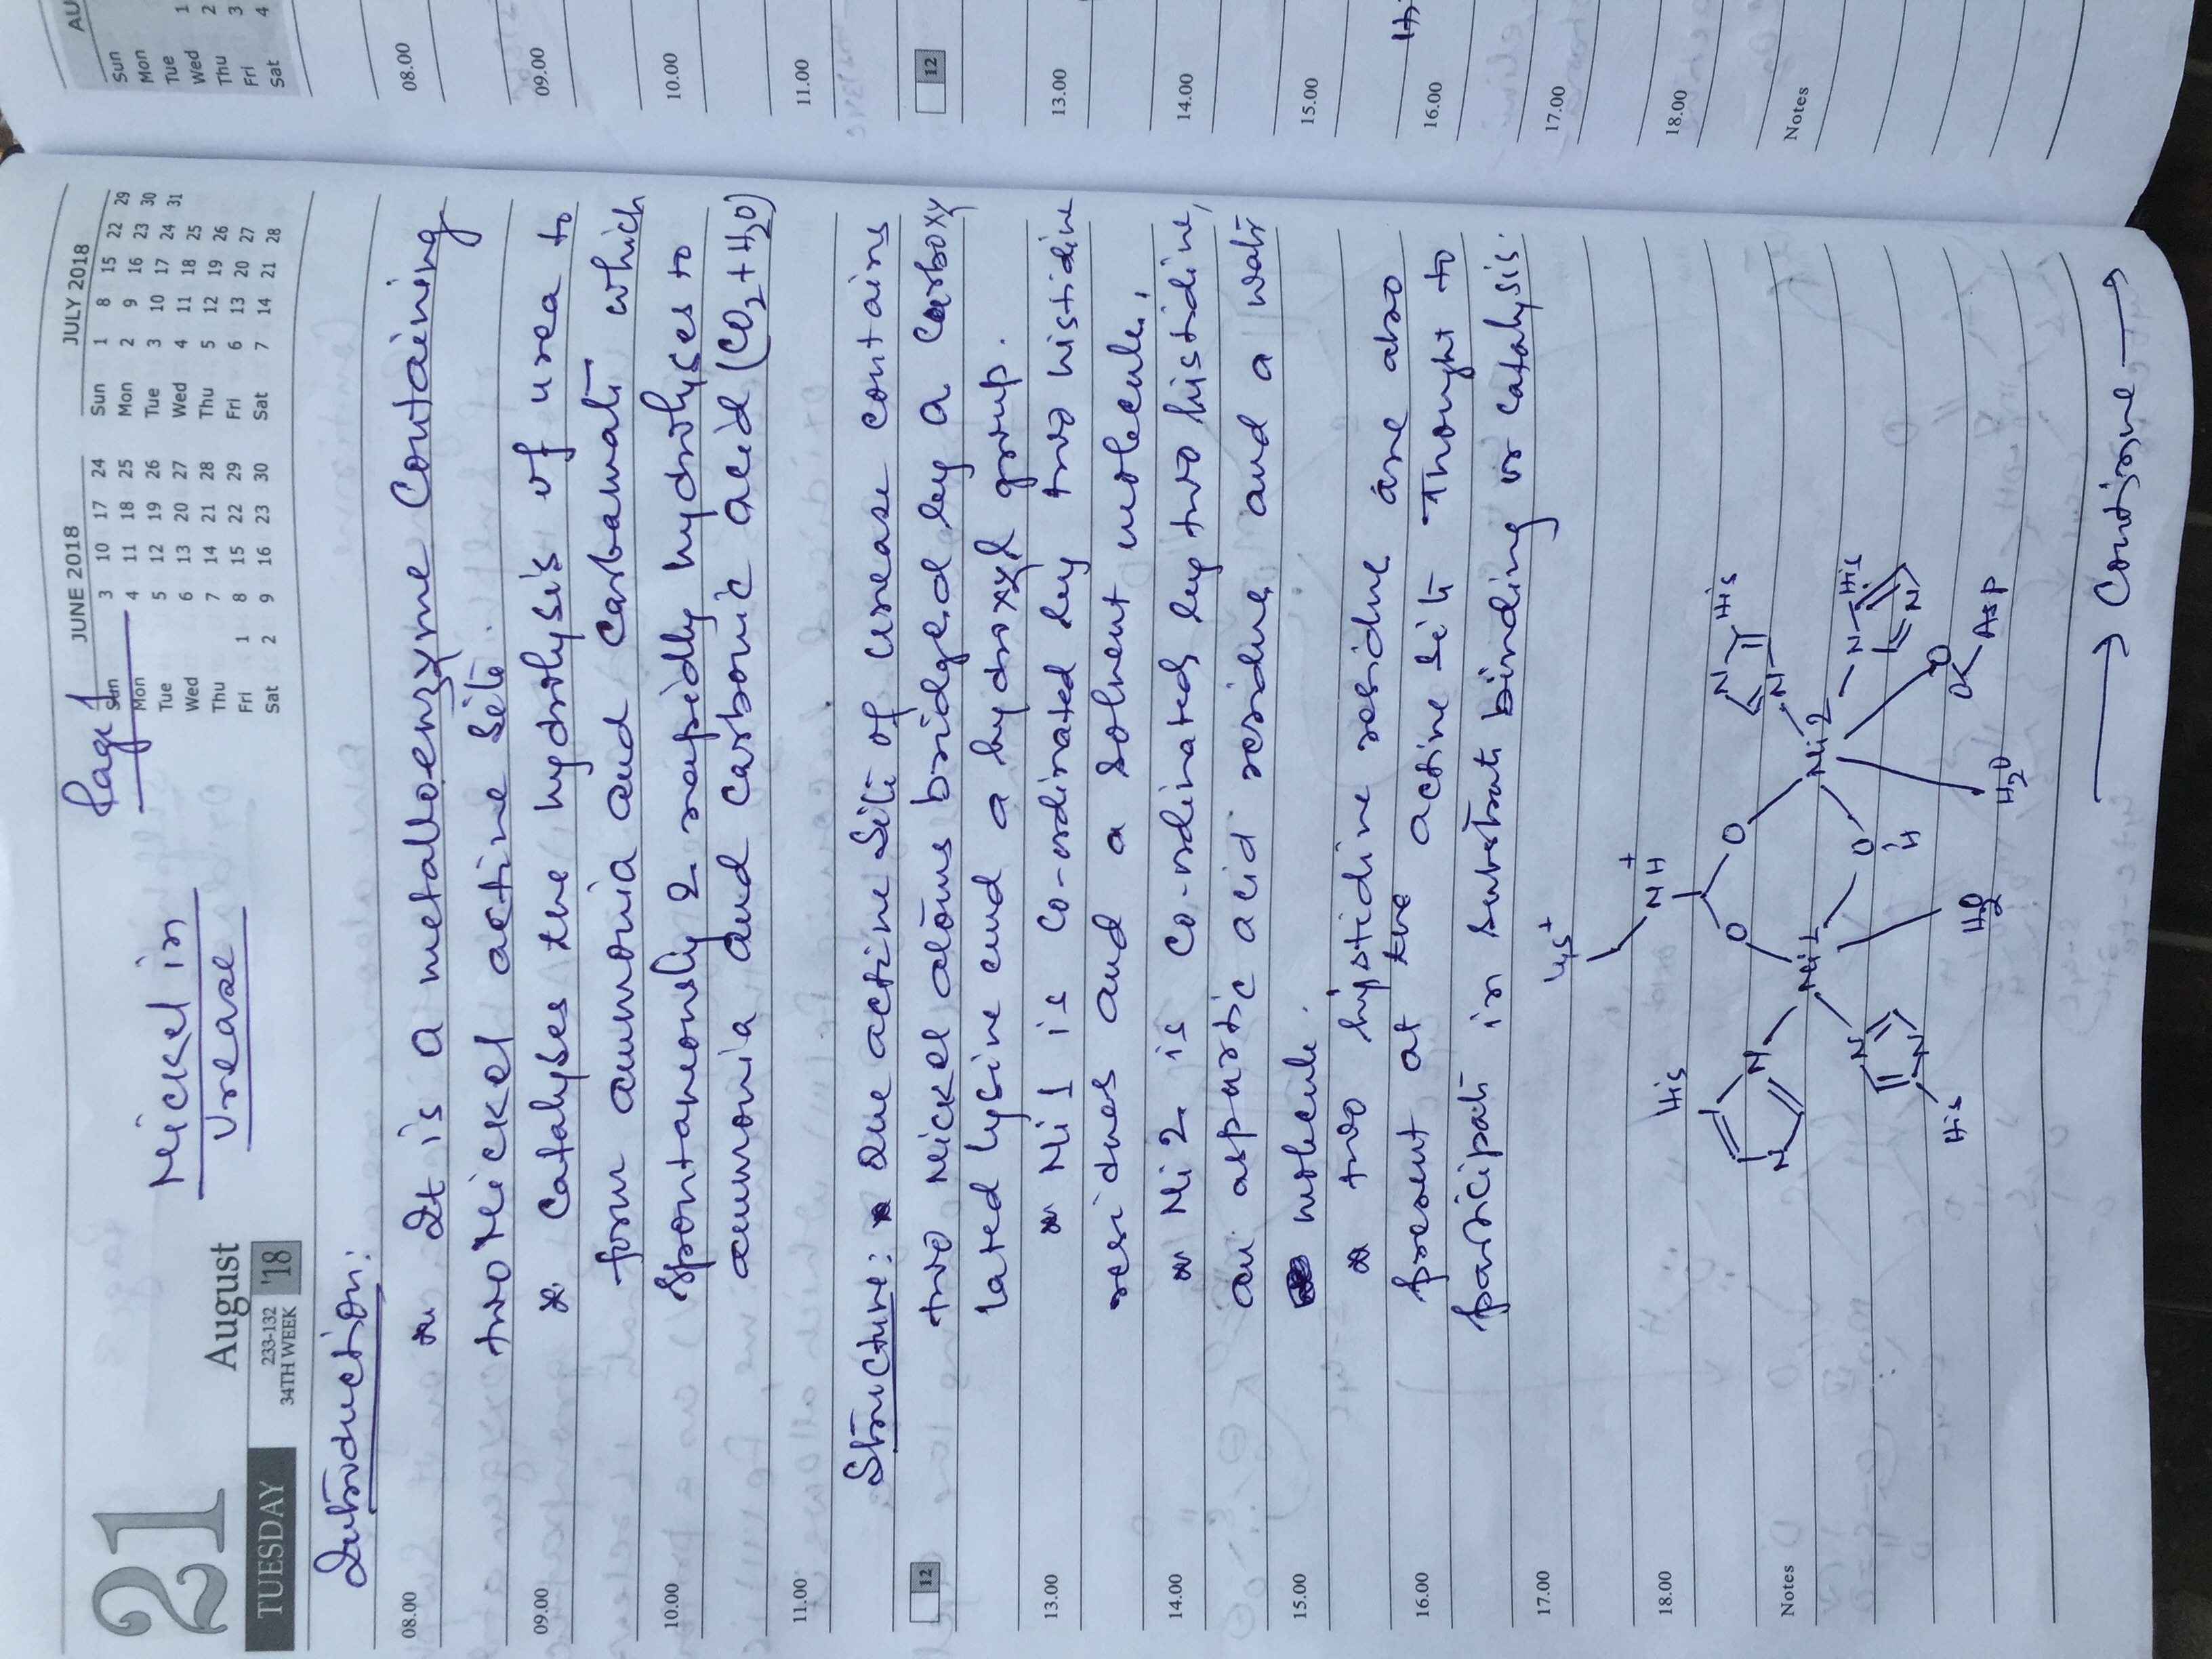 Page 1
21
August
TUESDAY
233-132
34TH WEEK
'18
Nickel in
Urease
JUNE 2018
Sun 3 10 17 24
Mon 4 11 18 25
Tue 5 12 19 26
Wed 6 13 20 27
Thu 7 14 21 28
Fri 1 8 15 22 29
Sat 2 9 16 23 30
JULY 2018
Sun 1 8 15 22 29
Mon 2 9 16 23 30
Tue 3 10 17 24 31
Wed 4 11 18 25
Thu 5 12 19 26
Fri 6 13 20 27
Sat 7 14 21 28
Introduction:
08.00 * It is a metalloenzyme Containing
two Nickel active site.
09.00 * Catalyses the hydrolysis of urea to
form ammonia and Carbamate which
10.00 Spontaneously & rapidly hydrolyses to
ammonia and carbonic acid (CO2 + H2O)
11.00
Structure: * The active site of urease contains
12 two Nickel atoms bridged by a Carboxy
lated lysine and a hydroxyl group.
13.00 * Ni 1 is co-ordinated by two histidine
residues and a solvent molecule,
14.00 * Ni 2 is co-ordinated by two histidine,
an aspartic acid residue, and a water
15.00 molecule.
* two hystidine residue are also
16.00 present at the active site Thought to
participate in substrate binding or catalysis.
17.00
Lys+
18.00
NH+
His
O O
His
N N
N N
Notes
Ni1 Ni2
N N His
O
H
N N
O
O Asp
His
H2O H2O
Continue
AU
Sun
Mon 1
Tue 2
Wed 3
Thu 4
Fri
Sat
08.00
09.00
10.00
11.00
12
13.00
14.00
15.00
16.00
17.00
18.00
Notes